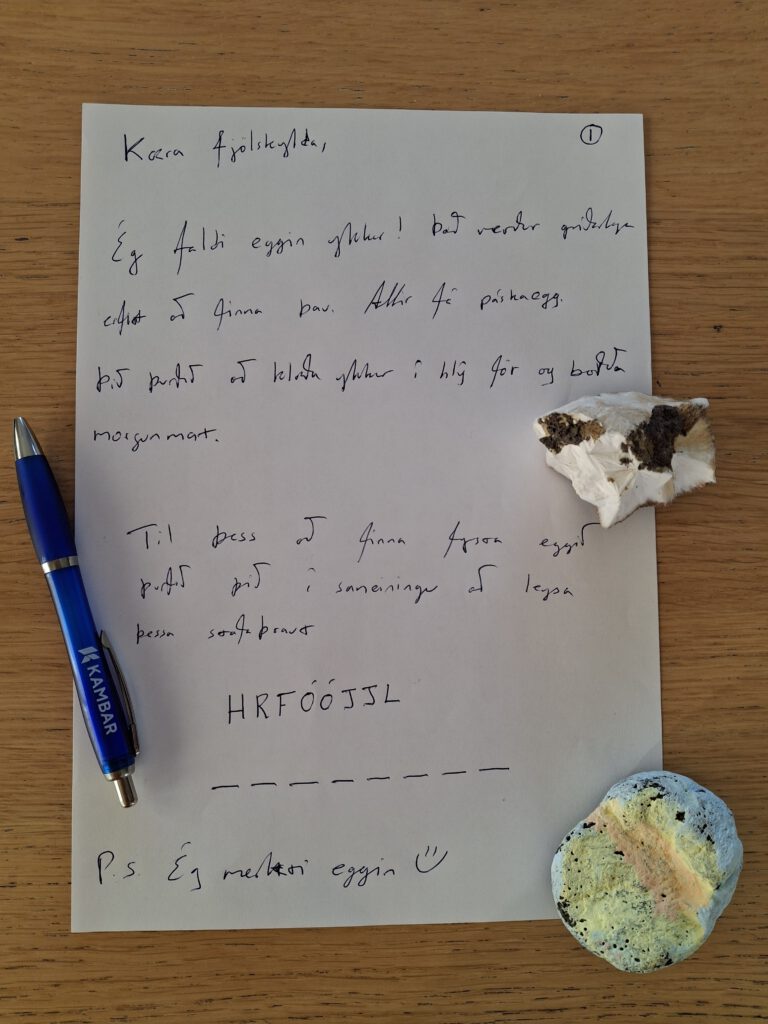 ①
Kæra fjölskylda,
Ég faldi eggin ykkar! Það verður gríðarlega
erfitt að finna þau. Allir fá páskaegg.
Þið þurfið að klæða ykkur í hlý föt og borða
morgunmat.
Til þess að finna fyrsta eggið
þurfið þið í sameiningu að leysa
þessa stafaþraut
HRFÓÓJJL
P.s. Ég merkti eggin
KAMBAR